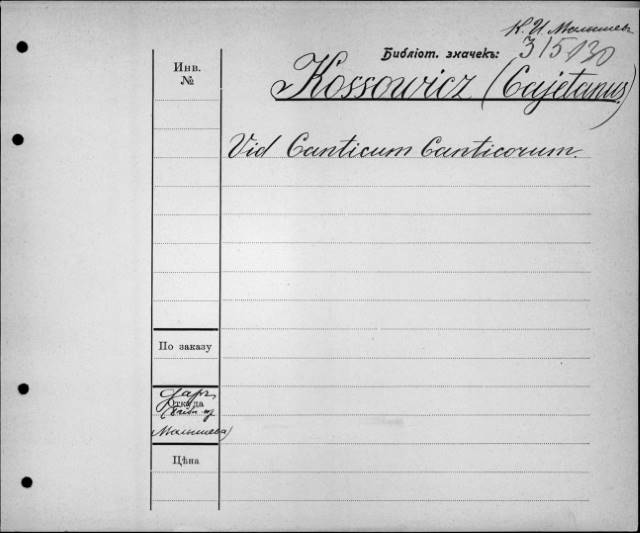 К. И. Малышев
Библіот. значекъ: 315/130
Инв.
№
Kossowicz (Cajetanus)
Vid Canticum Canticorum.
По заказу
Даръ
Откуда
Малышева)
Цѣна